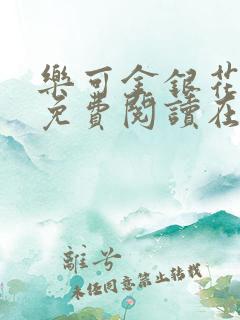 樂可金銀花
免費閱讀在
離兮
未經同意禁止轉載